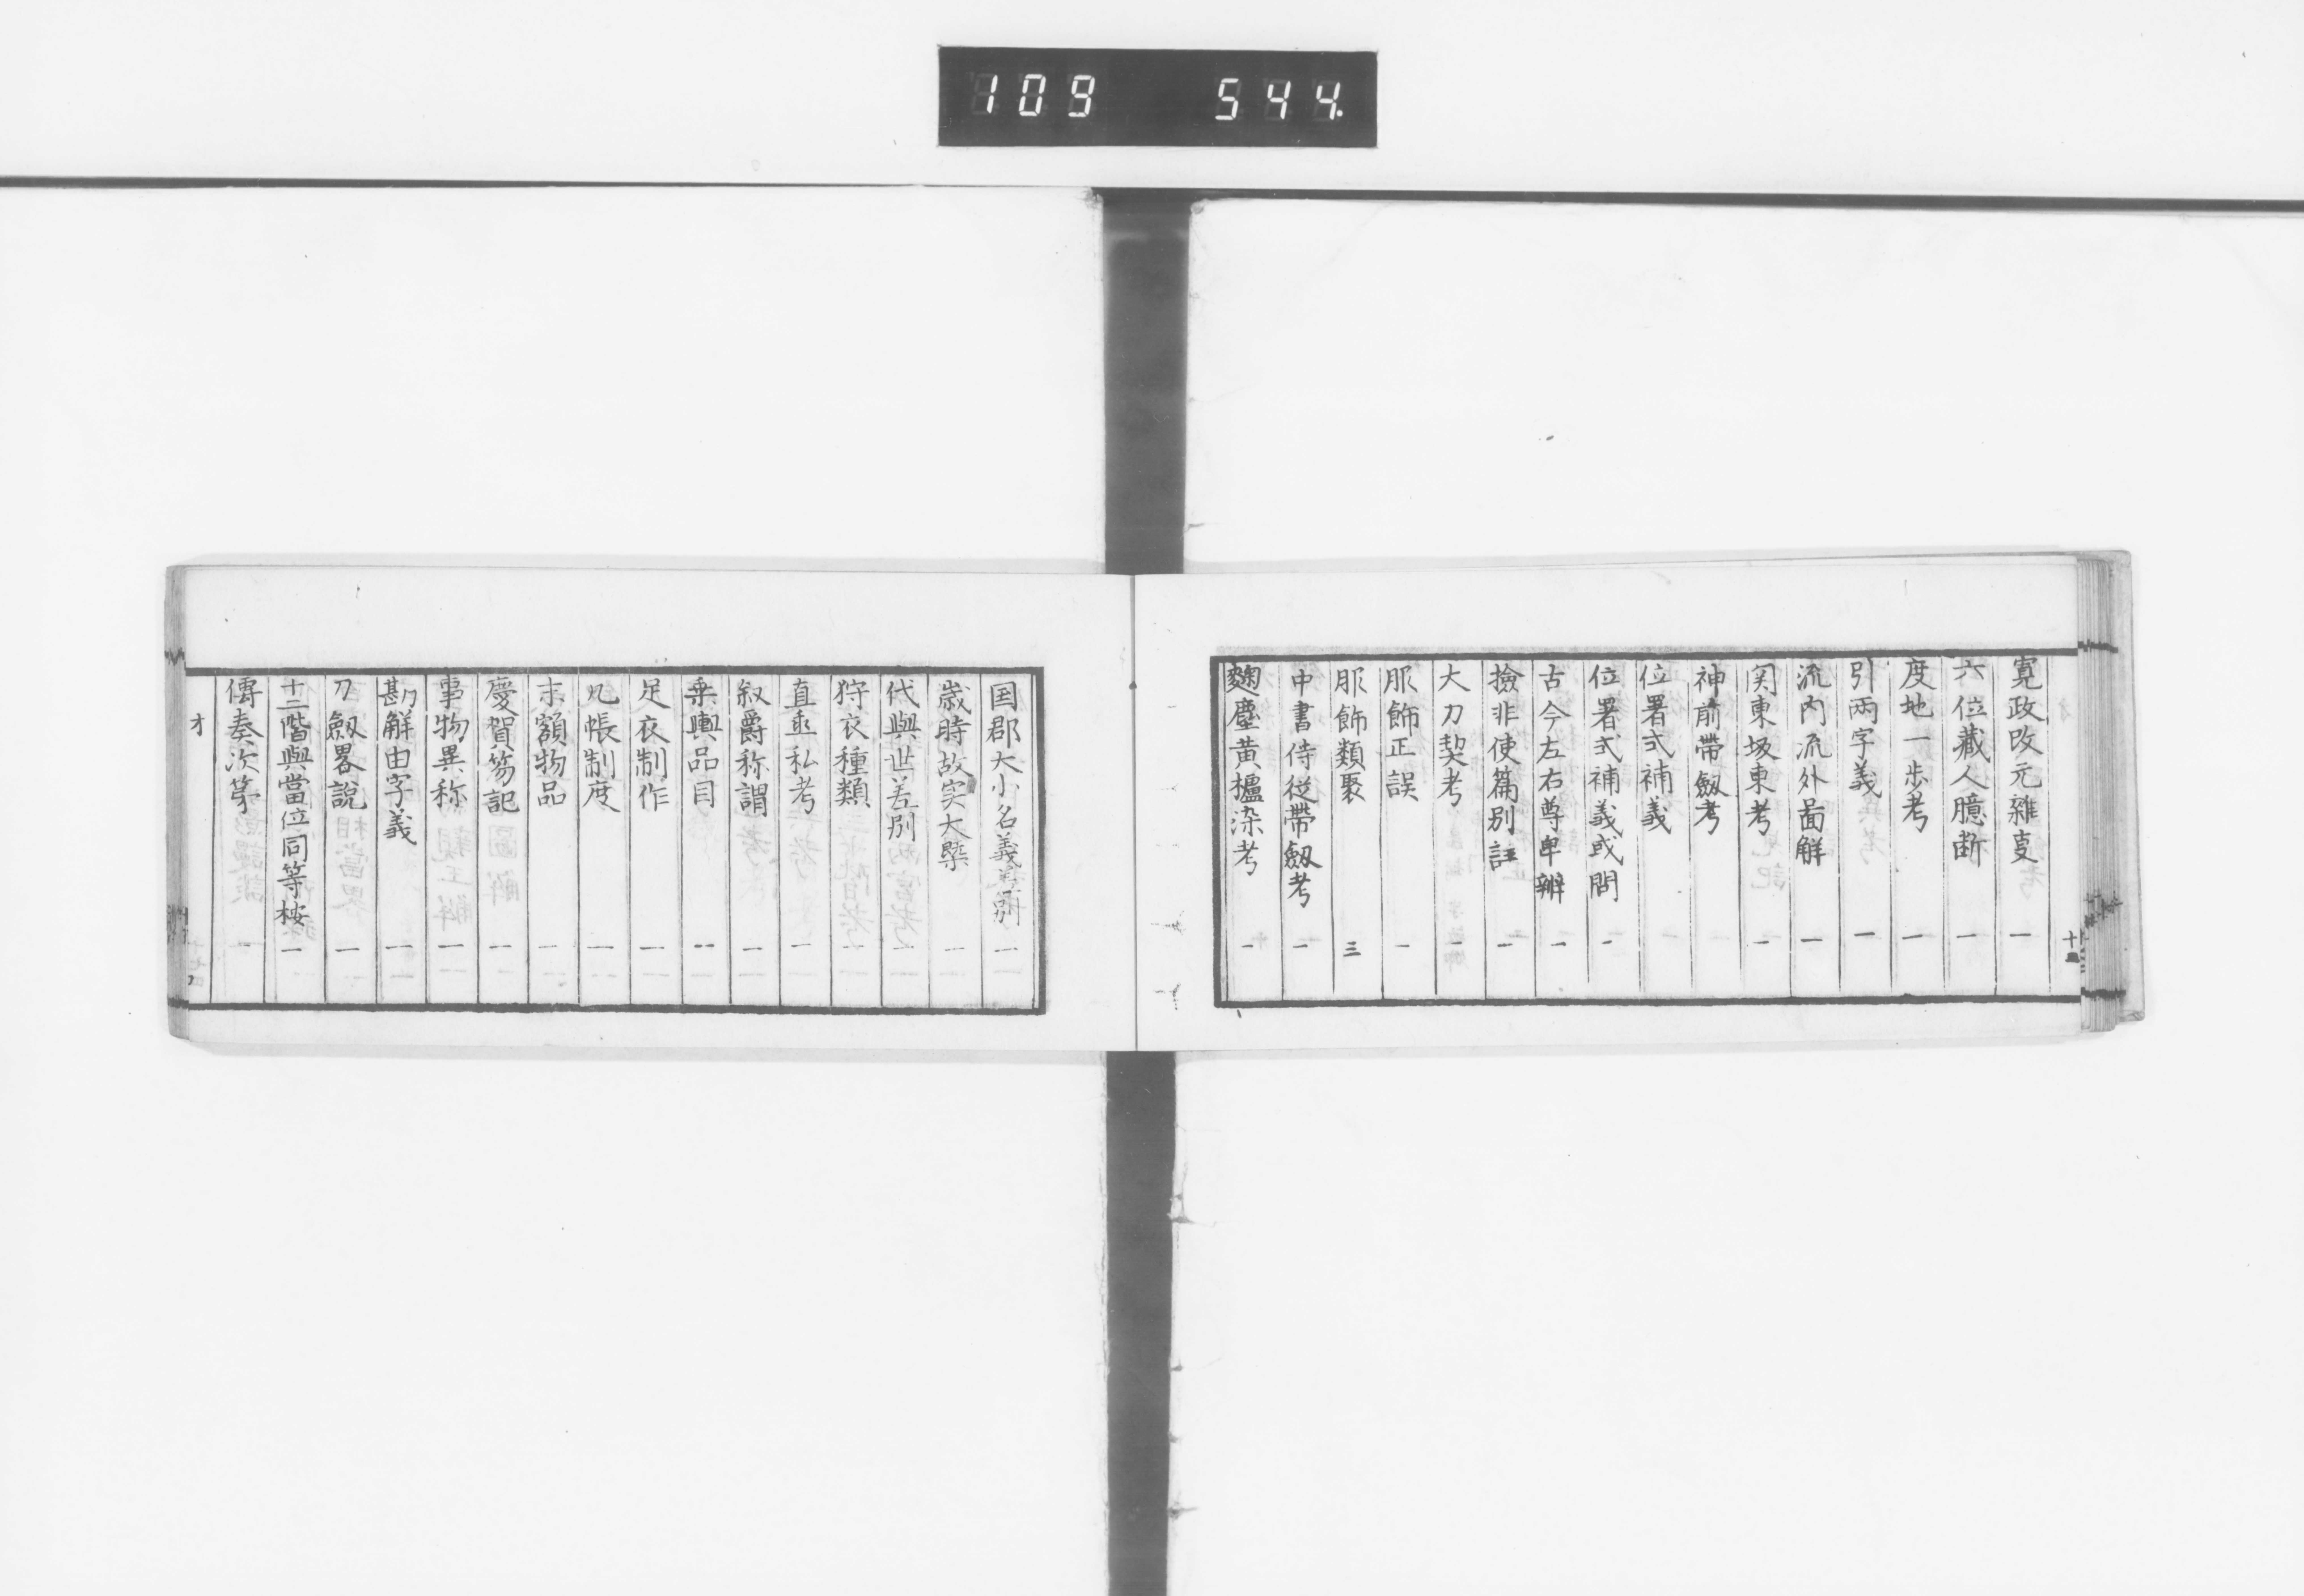 109 544.
寛政改元雜叓 一
六位藏人臆断 一
度地一歩考 一
引兩字義 一
流内流外啚解 一
関東坂東考 一
神前帶劔考
位署式補義 一
位署式補義或問 一
古今左右尊卑辨 一
撿非使篇別註 一
大刀契考 一
服飾正誤 一
服飾類聚 三
中書侍従帶劔考 一
麹塵黄櫨染考 一
国郡大小名義差別 一
歳時故実大槩 一
代與世差別 一
狩衣種類 一
直垂私考 一
叙爵称謂 一
乗輿品目 一
足衣制作 一
几帳制度 一
末額物品 一
慶賀笏記 一
事物異称 一
勘解由字義 一
刀劔畧説 一
十二階與當位同等桉 一
傳奏次第 一